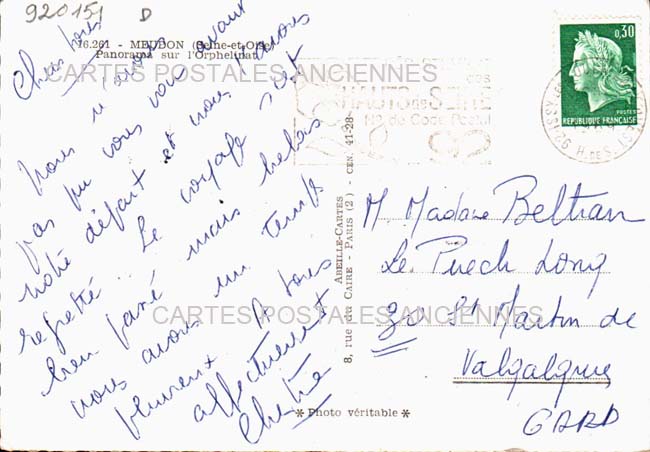 920151 D
16.261 - MEUDON (Seine-et-Oise)
Panorama sur l'Orphelinat
CARTES POSTALES ANCIENNES
Chers tous
Nous n'avons
pas pu vous voir avant
notre départ et nous avons
regretté. Le voyage s'est
bien passé mais hélas
nous avons un temps
pluvieux. A tous
affectueuxt
ABEILLE-CARTES
8, rue du CAIRE - PARIS (2e) - CEN. 41-28
* Photo véritable *
HAUTS DE SEINE
No de Code Postal
92
H. DE S.
0,30
POSTES
REPUBLIQUE FRANÇAISE
M. Madame Beltran
Le Puech Long
30 St Martin de
Valgalgue
GARD
CARTES POSTALES ANCIENNES